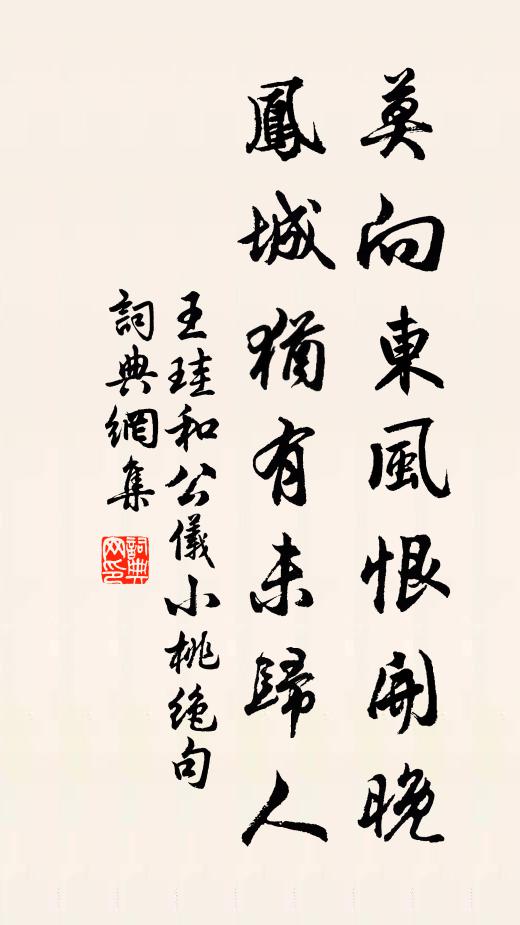 莫向東風恨開晚
鳳城猶有未歸人
王珪和公儀小桃絶句
詞典網集
詞典網印